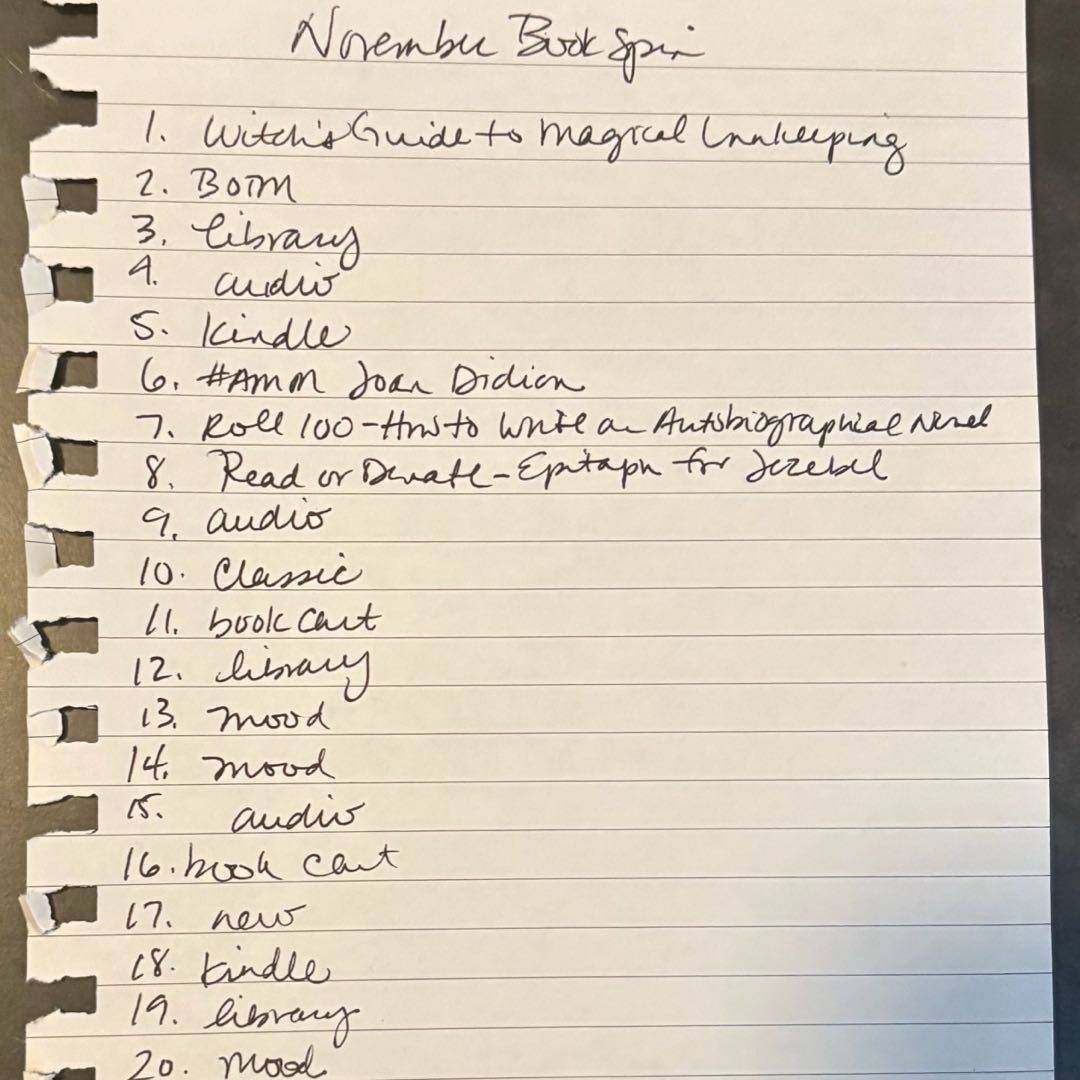 November Book Spin
1. Witch's Guide to Magical Innkeeping
2. BOTM
3. library
4. audio
5. Kindle
6. #AMM Joan Didion
7. Roll 100 - How to Write an Autobiographical Novel
8. Read or Donate - Epitaph for Jezebel
9. audio
10. Classic
11. book cart
12. library
13. mood
14. mood
15. audio
16. book cart
17. new
18. Kindle
19. library
20. mood